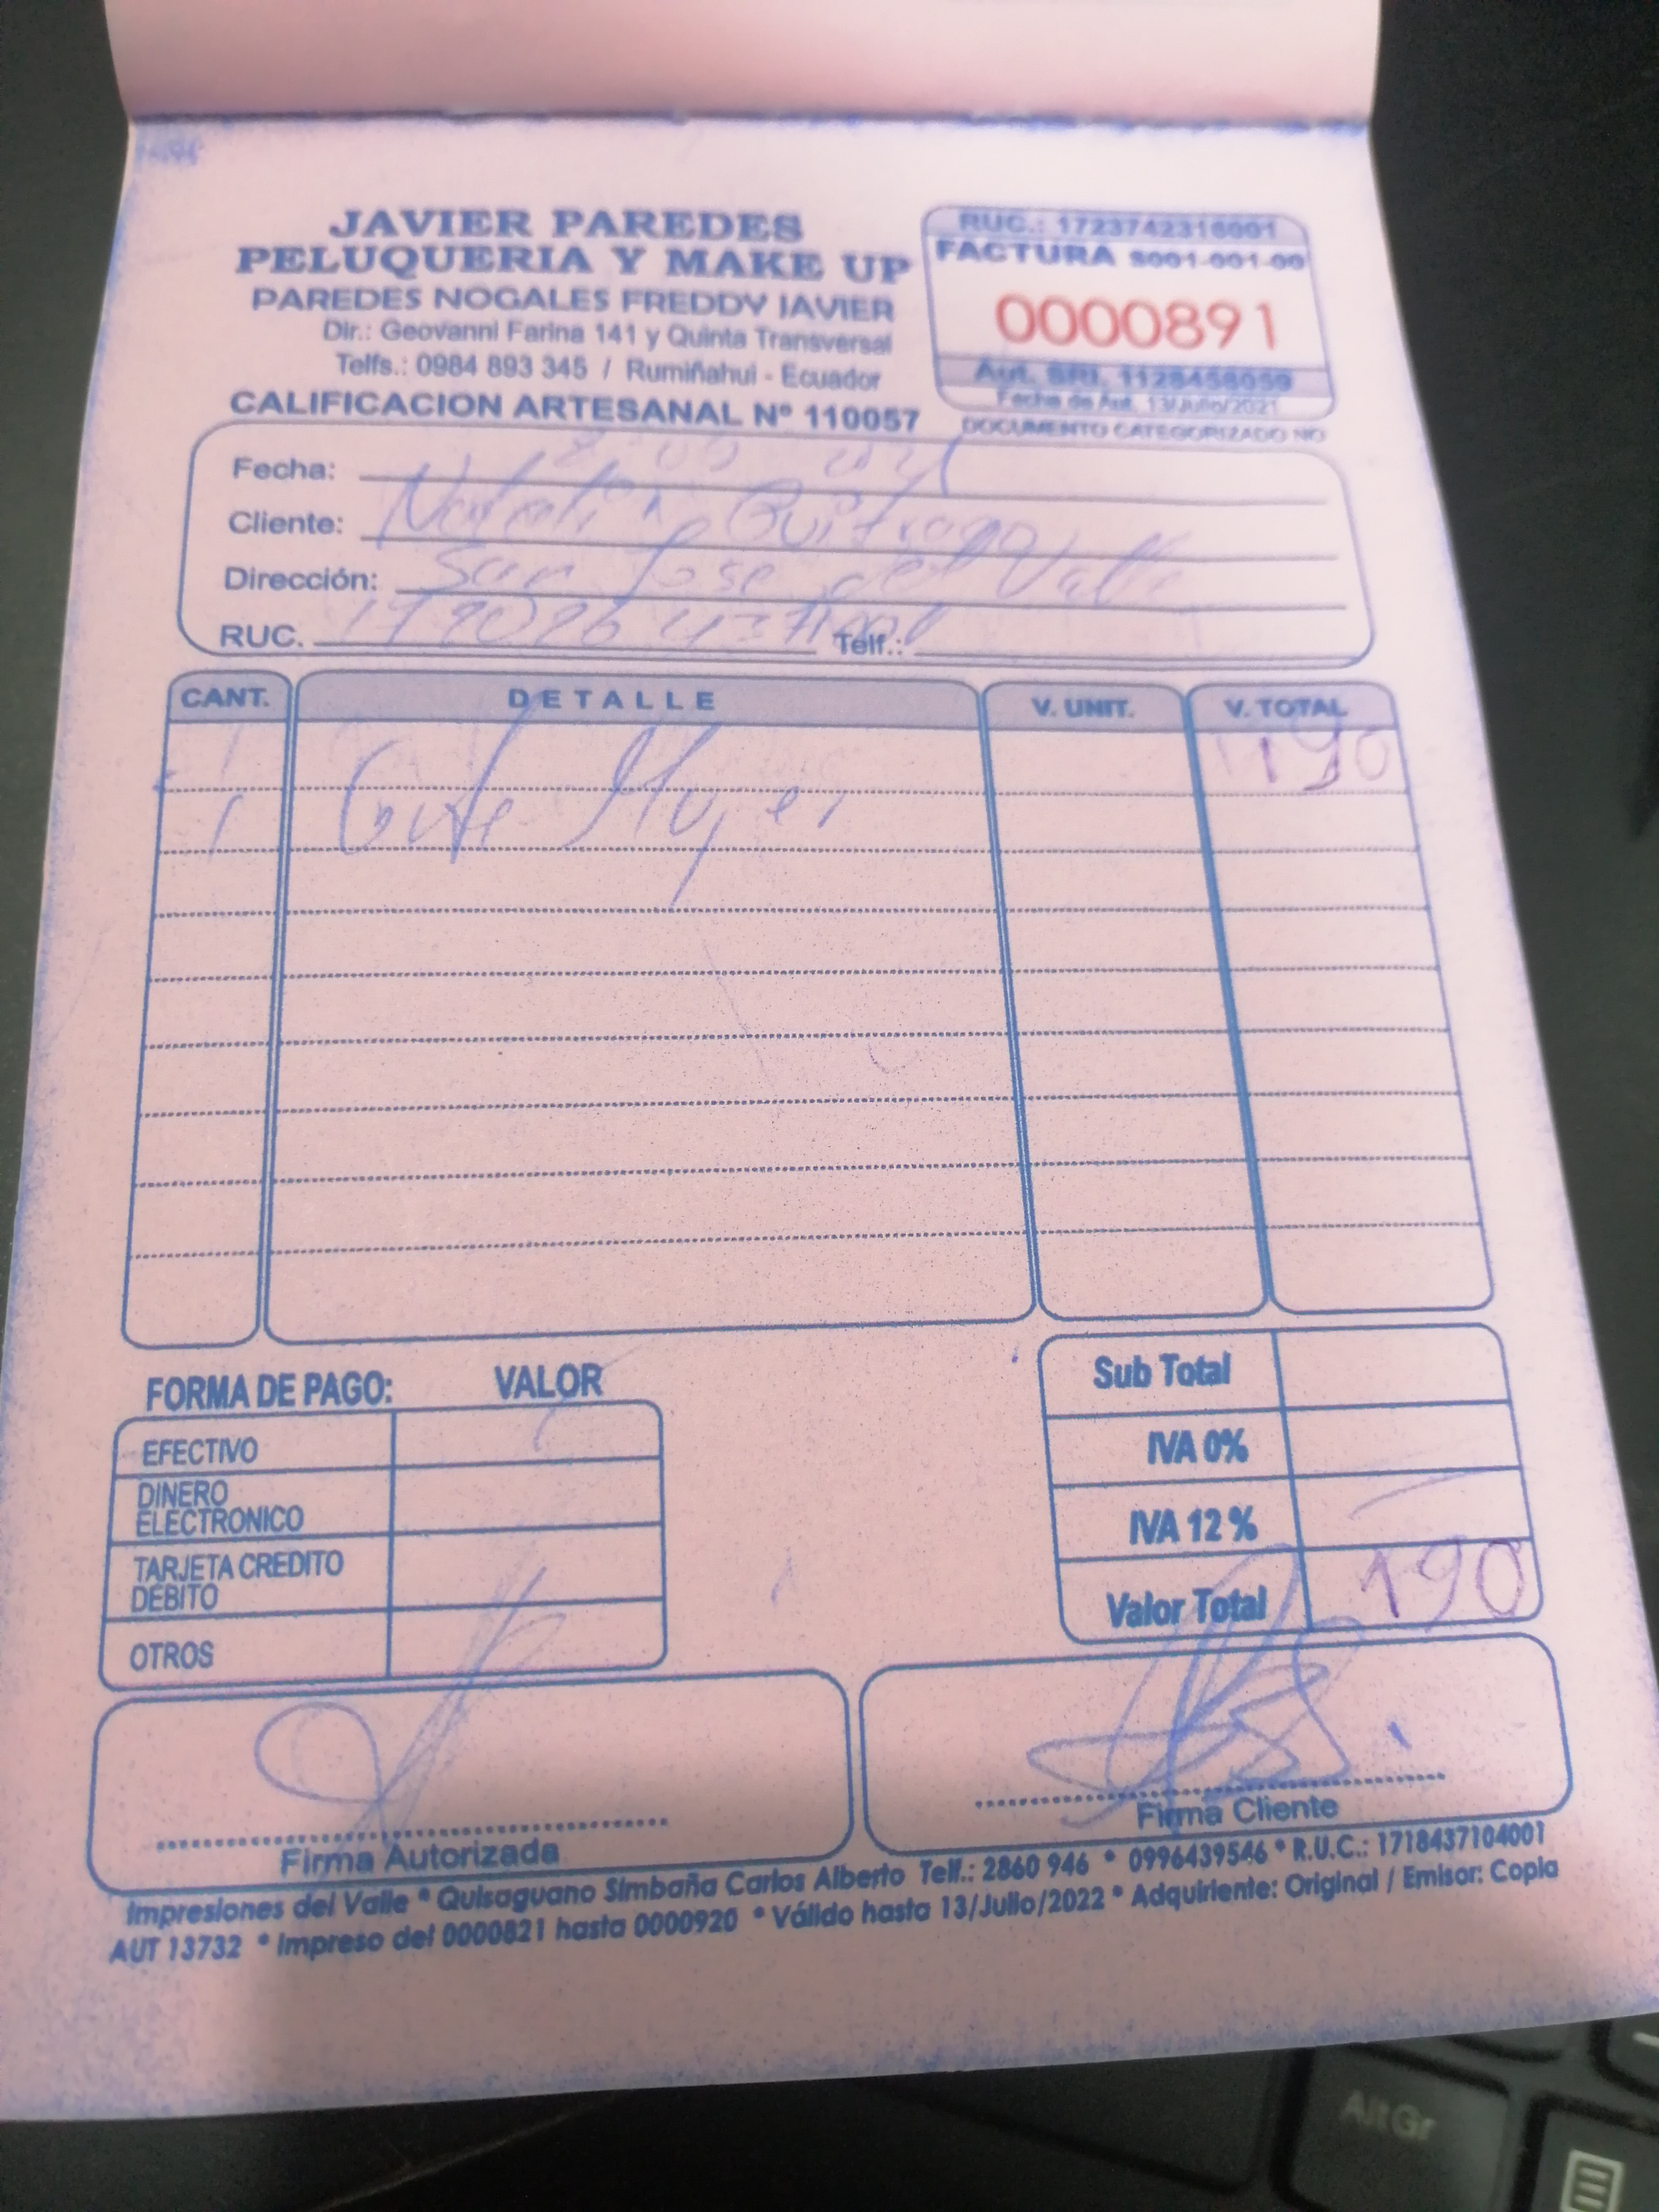 JAVIER PAREDES
PELUQUERIA Y MAKE UP
PAREDES NOGALES FREDDY JAVIER
Dir.: Geovanni Farina 141 y Quinta Transversal
Telfs.: 0984 893 345 / Rumiñahui - Ecuador
CALIFICACION ARTESANAL Nº 110057
RUC.: 1723742316001
FACTURA S001-001-00
0000891
Aut. SRI. 1128458059
Fecha de Aut. 13/Julio/2021
DOCUMENTO CATEGORIZADO NO
Fecha:
Cliente: Natalia Buitrago Valle
Dirección: San Jose del Valle
RUC. Telf.:
CANT. DETALLE V. UNIT. V. TOTAL
190
1 Corte Mujer
FORMA DE PAGO: VALOR
EFECTIVO
DINERO
ELECTRONICO
TARJETA CREDITO
DEBITO
OTROS
Sub Total
IVA 0%
IVA 12 %
Valor Total 190
Firma Autorizada
Firma Cliente
Impresiones del Valle * Quisaguano Simbaña Carlos Alberto Telf.: 2860 946 * 0996439546 * R.U.C.: 1718437104001
AUT 13732 * Impreso del 0000821 hasta 0000920 * Válido hasta 13/Julio/2022 * Adquiriente: Original / Emisor: Copia
AltGr